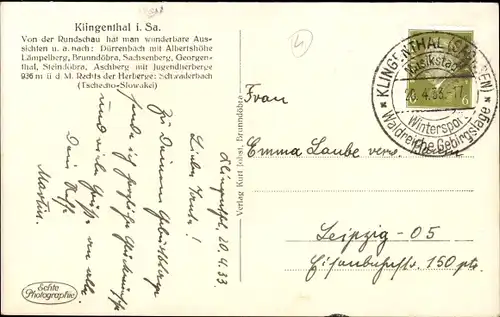 Klingenthal i. Sa.
Von der Rundschau hat man wunderbare Aus-
sichten u. a. nach: Dürrenbach mit Albertshöhe
Lämpelberg, Brunndöbra, Sachsenberg, Georgen-
thal, Steindöbra, Aschberg mit Jugendherberge
936 m ü d M. Rechts der Herberge: Schwaderbach
(Tschecho-Slowakei)
Klingenthl. 20.4.33
Liebe Tante!
Zu Deinem Geburtstage
sende ich herzliche Glückwünsche
und viele Grüße an alle.
Dein Neffe
Martin.
Echte
Photographie
Verlag Kurt Brunndöbra
KLINGENTHAL (SACHSEN)
Musikstadt
20.4.33.-17
Wintersport
Waldreiche Gebirgslage
6
Frau
Emma Laube verw.
Leipzig - O5
Eisenbahnstr. 150 ptr.